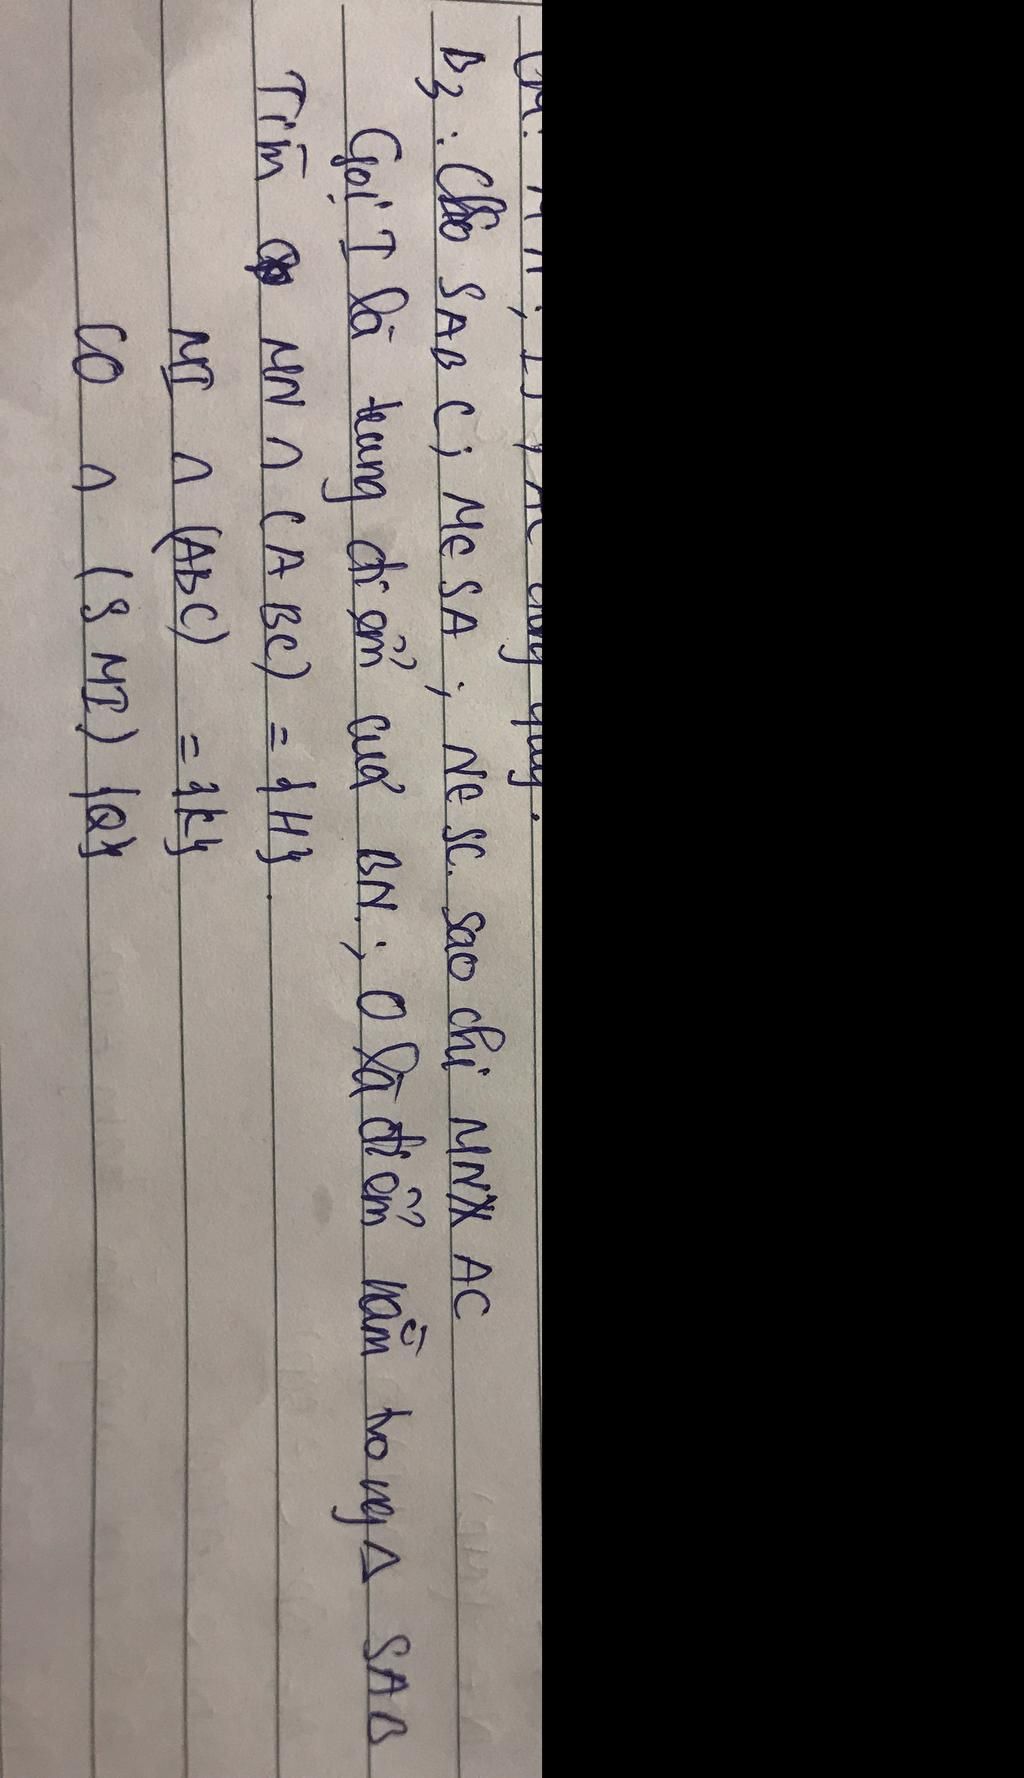 B3: Cho SABC; M∈SA; N∈SC. sao chi MN∦AC
Gọi I là trung điểm của BN; O là điểm nằm trong Δ SAB
Tìm MN ∩ (ABC) = {H}.
MI ∩ (ABC) = {K}
CO ∩ (SMI) {Q}